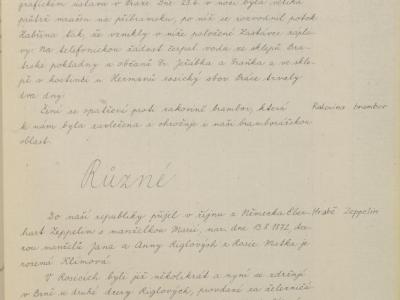 grafickém ústavu v Praze Dne 29.6. v noci byla veliká
průtrž mračen na příbramsku, po níž se rozvodnil potok
Habřina tak, že vznikly v níže položené Zastávce zápla-
vy. Na telefonickou žádost čerpal vodu ze sklepů Bra-
trské pokladny u občanů Fr. Jeřábka a Fraňka a ve skle-
pě v hostinci u Hermanů rosický sbor Práce trvaly
dva dny.
Činí se opatření proti rakovině brambor, která
Rakovina brambor
k nám byla zavlečena a ohrožuje i naši bramborářskou
oblast.
Různé
Do naší republiky přijel v říjnu z Německa Eber-
Hrabě Zeppelin
hart Zeppelin s manželkou Marií, nar. dne 13.8.1872, dce-
rou manželů Jana a Anny Riglových z Rosic Matka je
rozená Klímová
V Rosicích byli již několikrát a nyní se zdržují
v Brně u druhé dcery Riglových, provdané za železniče